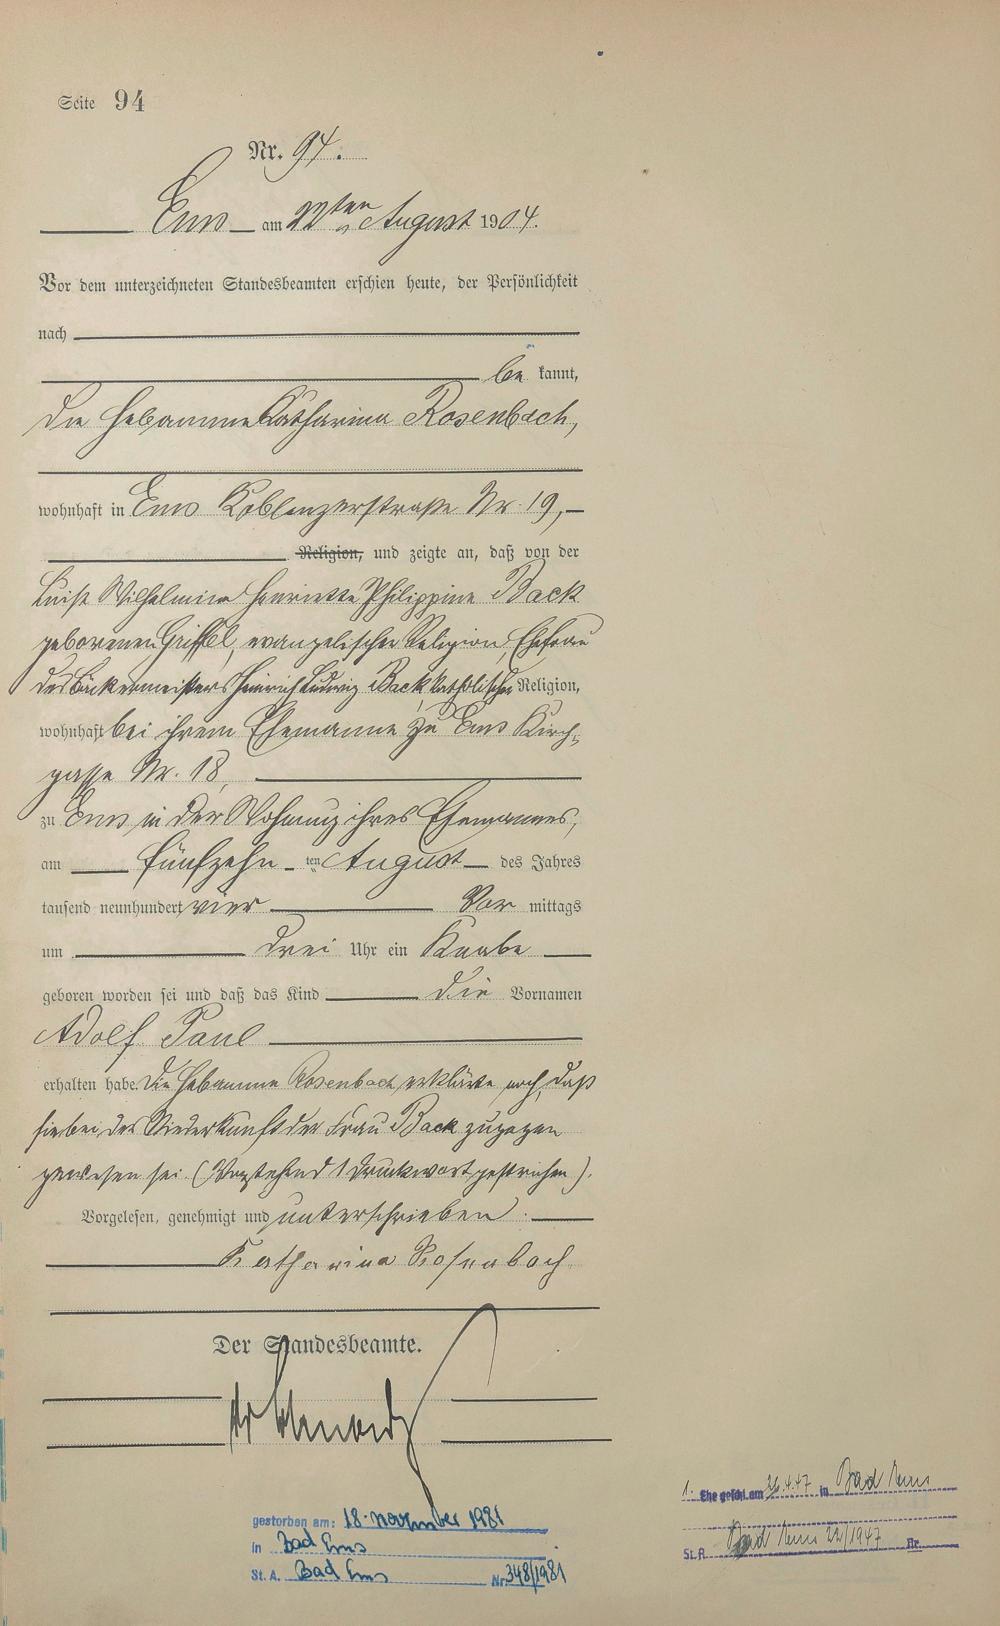 Seite 94
Nr. 94.
Ems am 22ten August 1904.
Vor dem unterzeichneten Standesbeamten erschien heute, der Persönlichkeit
nach
be kannt,
die Hebamme Katharina Rosenbach,
wohnhaft in Ems Koblenzerstraße Nr. 19,
Religion, und zeigte an, daß von der
Luise Wilhelmine Henriette Philippine Back
geborenen Griffel, evangelischer Religion, Ehefrau
des Bäckermeisters Heinrich Ludwig Back, katholischer Religion,
wohnhaft bei ihrem Ehemanne zu Ems Kirch-
gasse Nr. 18,
zu Ems in der Wohnung ihres Ehemannes,
am fünfzehn ten August des Jahres
tausend neunhundert vier Vor mittags
um drei Uhr ein Knabe
geboren worden sei und daß das Kind die Vornamen
Adolf Paul
erhalten habe. Die Hebamme Rosenbach erklärte noch, daß
sie bei der Niederkunft der Frau Back zugegen
gewesen sei. (Vorstehend 1 Druckwort gestrichen).
Vorgelesen, genehmigt und unterschrieben.
Katharina Rosenbach
Der Standesbeamte.
gestorben am: 18. november 1981
in Bad Ems
St. A. Bad Ems Nr. 348/1981
1. Ehe geschl. am 26.4.47 in Bad Ems
St. A. Bad Ems 22/1947 Nr.